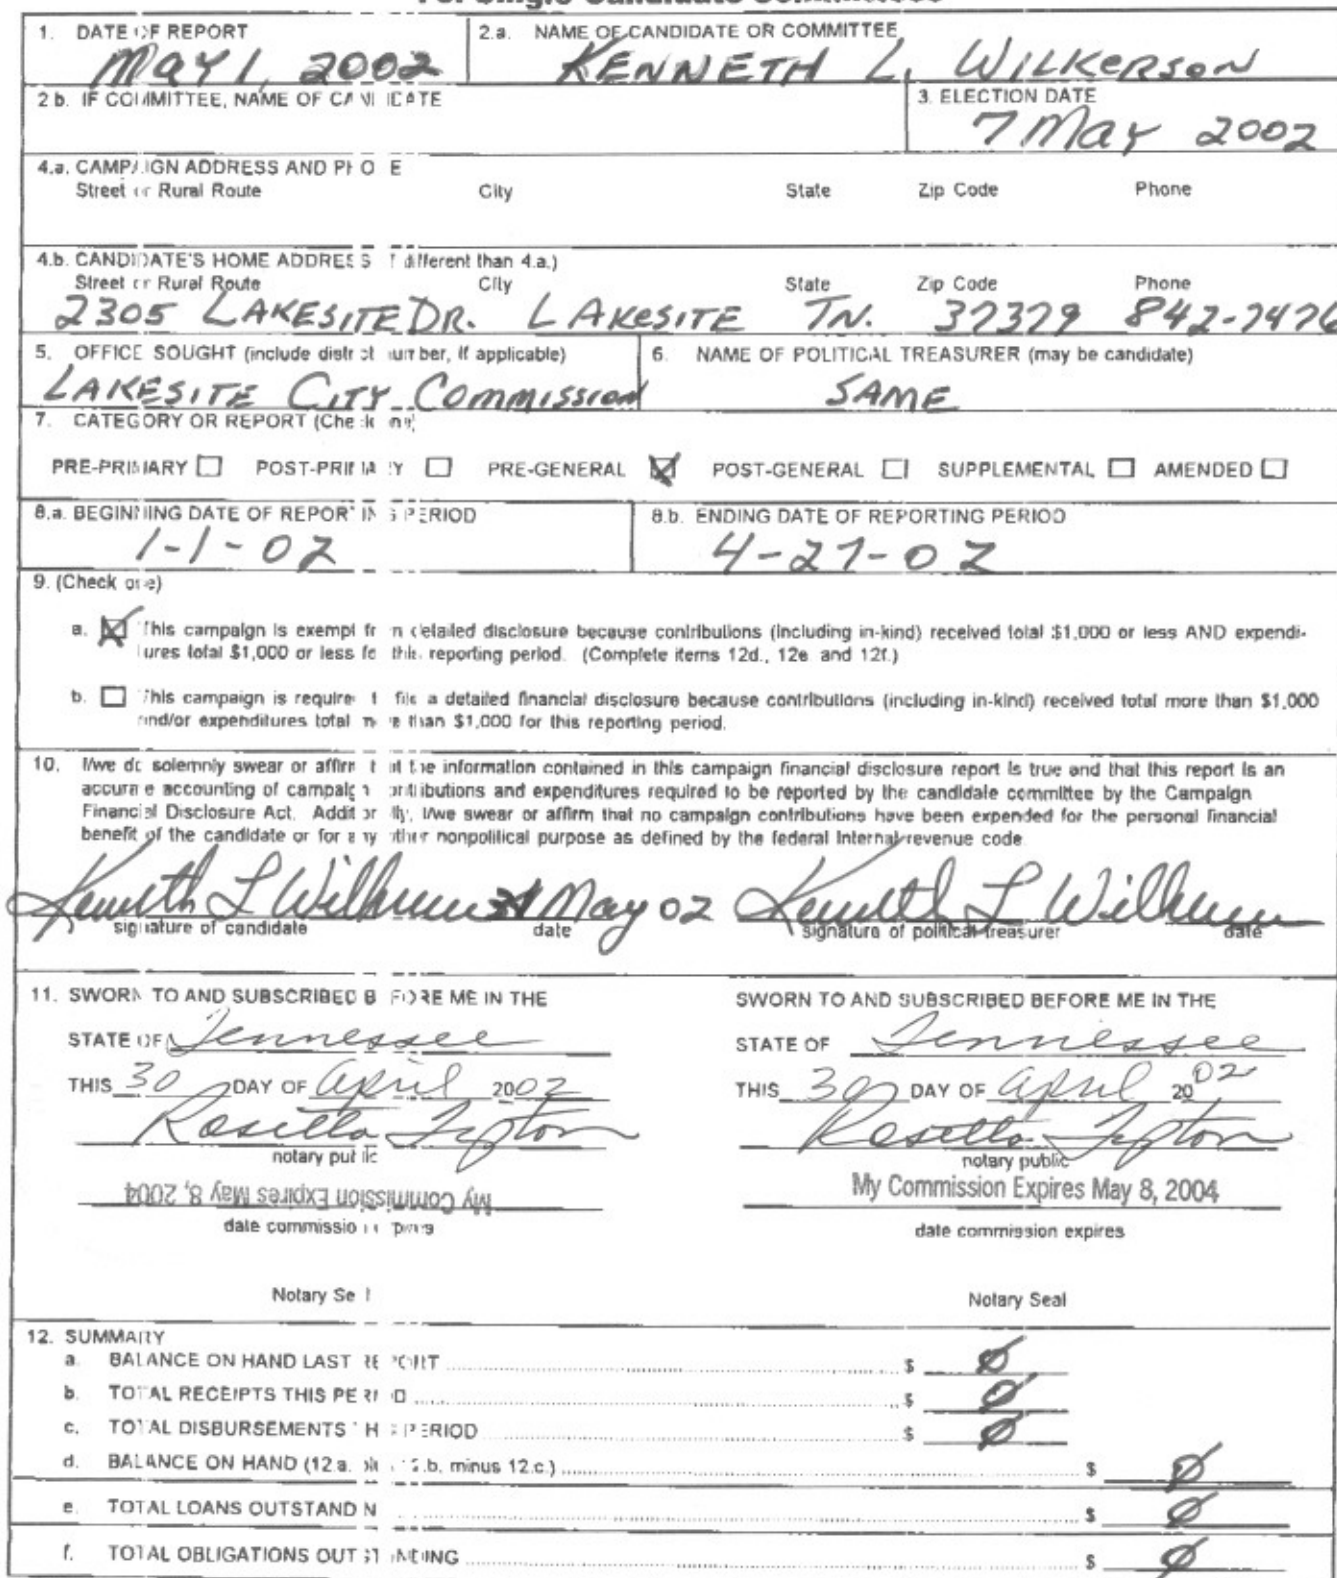 For Single Candidate Committees
1. DATE OF REPORT
MAY 1, 2002
2.a. NAME OF CANDIDATE OR COMMITTEE
KENNETH L. WILKERSON
2 b. IF COMMITTEE, NAME OF CANDIDATE
3. ELECTION DATE
7 MAY 2002
4.a. CAMPAIGN ADDRESS AND PHONE
Street or Rural Route City State Zip Code Phone
4.b. CANDIDATE'S HOME ADDRESS (If different than 4.a.)
Street or Rural Route City State Zip Code Phone
2305 LAKESITE DR. LAKESITE TN. 37379 842-7476
5. OFFICE SOUGHT (include district number, if applicable)
LAKESITE CITY COMMISSION
6. NAME OF POLITICAL TREASURER (may be candidate)
SAME
7. CATEGORY OR REPORT (Check one)
PRE-PRIMARY POST-PRIMARY PRE-GENERAL POST-GENERAL SUPPLEMENTAL AMENDED
8.a. BEGINNING DATE OF REPORTING PERIOD
1-1-02
8.b. ENDING DATE OF REPORTING PERIOD
4-27-02
9. (Check one)
a. This campaign is exempt from detailed disclosure because contributions (including in-kind) received total $1,000 or less AND expendi-
tures total $1,000 or less for this reporting period. (Complete items 12d., 12e and 12f.)
b. This campaign is required to file a detailed financial disclosure because contributions (including in-kind) received total more than $1,000
and/or expenditures total more than $1,000 for this reporting period.
10. I/we do solemnly swear or affirm that the information contained in this campaign financial disclosure report is true and that this report is an
accurate accounting of campaign contributions and expenditures required to be reported by the candidate committee by the Campaign
Financial Disclosure Act. Additionally, I/we swear or affirm that no campaign contributions have been expended for the personal financial
benefit of the candidate or for any other nonpolitical purpose as defined by the federal Internal revenue code.
Kenneth L Wilkerson May 02 Kenneth L Wilkerson
signature of candidate date signature of political treasurer date
11. SWORN TO AND SUBSCRIBED BEFORE ME IN THE
STATE OF Tennessee
THIS 30 DAY OF April 2002
Rosetta Tipton
notary public
My Commission Expires May 8, 2004
date commission expires
Notary Seal
SWORN TO AND SUBSCRIBED BEFORE ME IN THE
STATE OF Tennessee
THIS 30 DAY OF April 2002
Rosetta Tipton
notary public
My Commission Expires May 8, 2004
date commission expires
Notary Seal
12. SUMMARY
a. BALANCE ON HAND LAST REPORT $ 0
b. TOTAL RECEIPTS THIS PERIOD $ 0
c. TOTAL DISBURSEMENTS THIS PERIOD $ 0
d. BALANCE ON HAND (12.a. plus 12.b. minus 12.c.) $ 0
e. TOTAL LOANS OUTSTANDING $ 0
f. TOTAL OBLIGATIONS OUTSTANDING $ 0